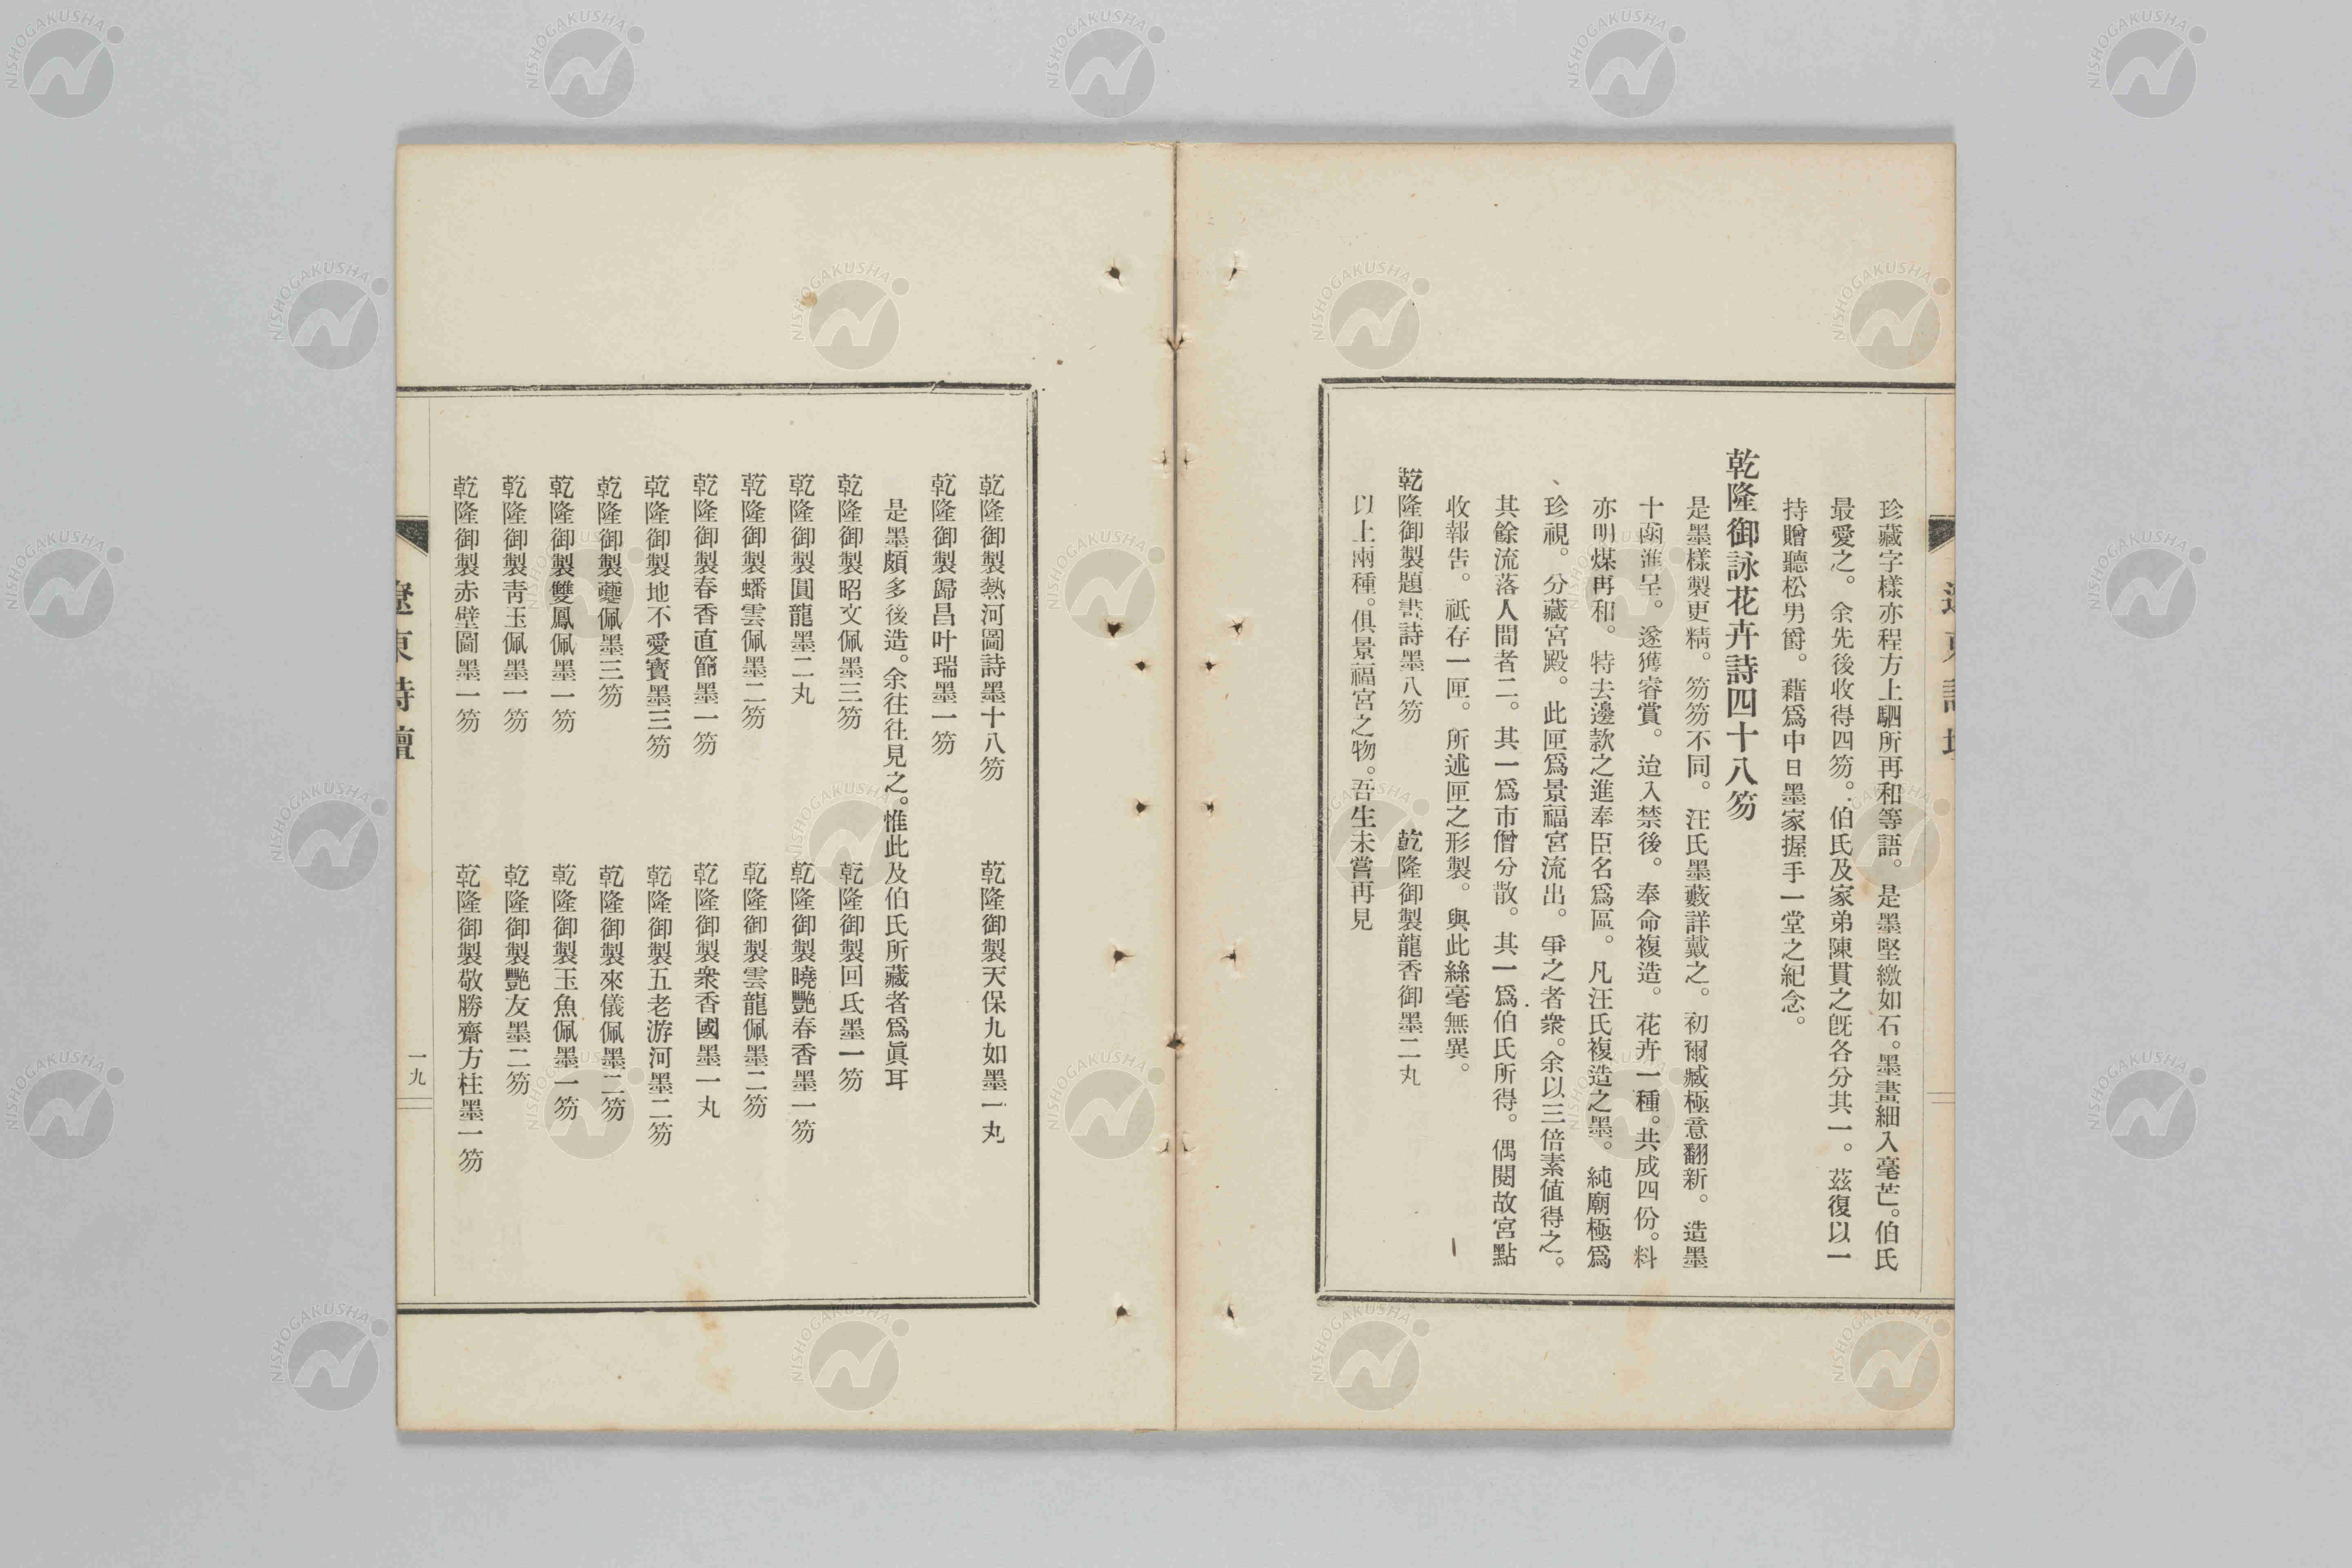 珍藏字樣亦程方上駟所再和等語。是墨堅緻如石。墨畫細入毫芒。伯氏
最愛之。余先後收得四笏。伯氏及家弟陳貫之旣各分其一。茲復以一
持贈聽松男爵。藉爲中日墨家握手一堂之紀念。
乾隆御詠花卉詩四十八笏
是墨樣製更精。笏笏不同。汪氏墨藪詳戴之。初爾臧極意翻新。造墨
十函進呈。遂獲睿賞。迨入禁後。奉命複造。花卉一種。共成四份。料
亦明煤再和。特去邊款之進奉臣名爲區。凡汪氏複造之墨。純廟極爲
珍視。分藏宮殿。此匣爲景福宮流出。爭之者衆。余以三倍素值得之。
其餘流落人間者二。其一爲市僧分散。其一爲伯氏所得。偶閱故宮點
收報告。祇存一匣。所述匣之形製。與此絲毫無異。
乾隆御製題畫詩墨八笏 乾隆御製龍香御墨二丸
以上兩種。俱景福宮之物。吾生未嘗再見
乾隆御製熱河圖詩墨十八笏 乾隆御製天保九如墨一丸
乾隆御製歸昌叶瑞墨一笏
是墨頗多後造。余往往見之。惟此及伯氏所藏者爲眞耳
乾隆御製昭文佩墨三笏 乾隆御製回氏墨一笏
乾隆御製圓龍墨二丸 乾隆御製曉艷春香墨一笏
乾隆御製蟠雲佩墨二笏 乾隆御製雲龍佩墨二笏
乾隆御製春香直節墨一笏 乾隆御製衆香國墨一丸
乾隆御製地不愛寶墨三笏 乾隆御製五老游河墨二笏
乾隆御製夔佩墨三笏 乾隆御製來儀佩墨二笏
乾隆御製雙鳳佩墨一笏 乾隆御製玉魚佩墨一笏
乾隆御製靑玉佩墨一笏 乾隆御製艷友墨二笏
乾隆御製赤壁圖墨一笏 乾隆御製敬勝齋方柱墨一笏
遼東詩壇
一九
NISHOGAKUSHA